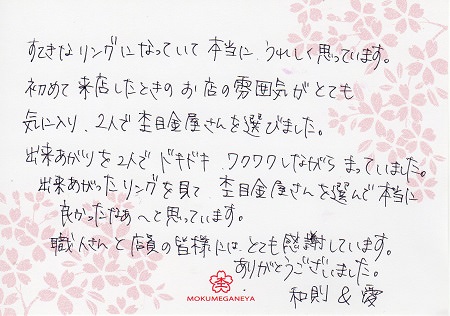 すてきなリングになっていて本当に、うれしく思っています。
初めて来店したときのお店の雰囲気がとても
気に入り、2人で杢目金屋さんを選びました。
出来あがりを2人でドキドキ、ワクワクしながらまっていました。
出来あがったリングを見て杢目金屋さんを選んで本当に
良かったなあ〜と思っています。
職人さんと店員の皆様には、とても感謝しています。
ありがとうございました。
和則 & 愛
杢
MOKUMEGANEYA